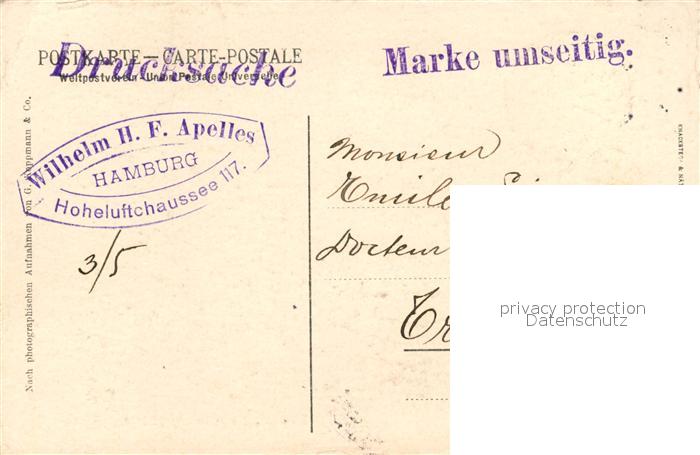 POSTKARTE — CARTE-POSTALE
Weltpostverein - Union Postale Universelle
Drucksache
Marke umseitig.
Wilhelm H. F. Apelles
HAMBURG
Hoheluftchaussee 117.
3/5
Monsieur
Emile
Docteur
privacy protection
Datenschutz
Nach photographischen Aufnahmen von G. Koppmann & Co.